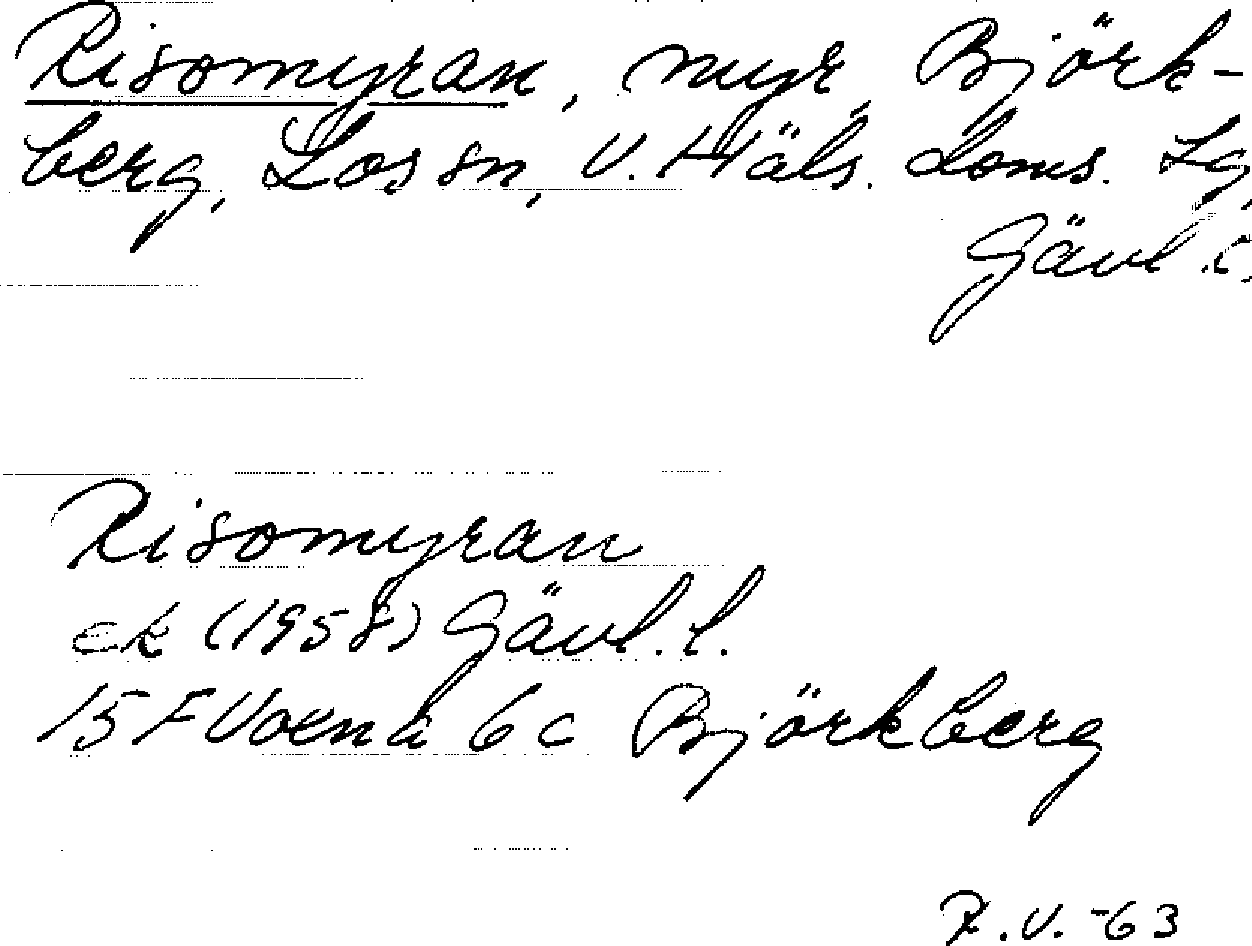 Risomyran, myr, Björk-
berg, Los sn, V. Häls. doms. Lg,
Gävl. l.
Risomyran
ek (1958) Gävl. l.
15 F Voxna 6c Björkberg
R.V. -63